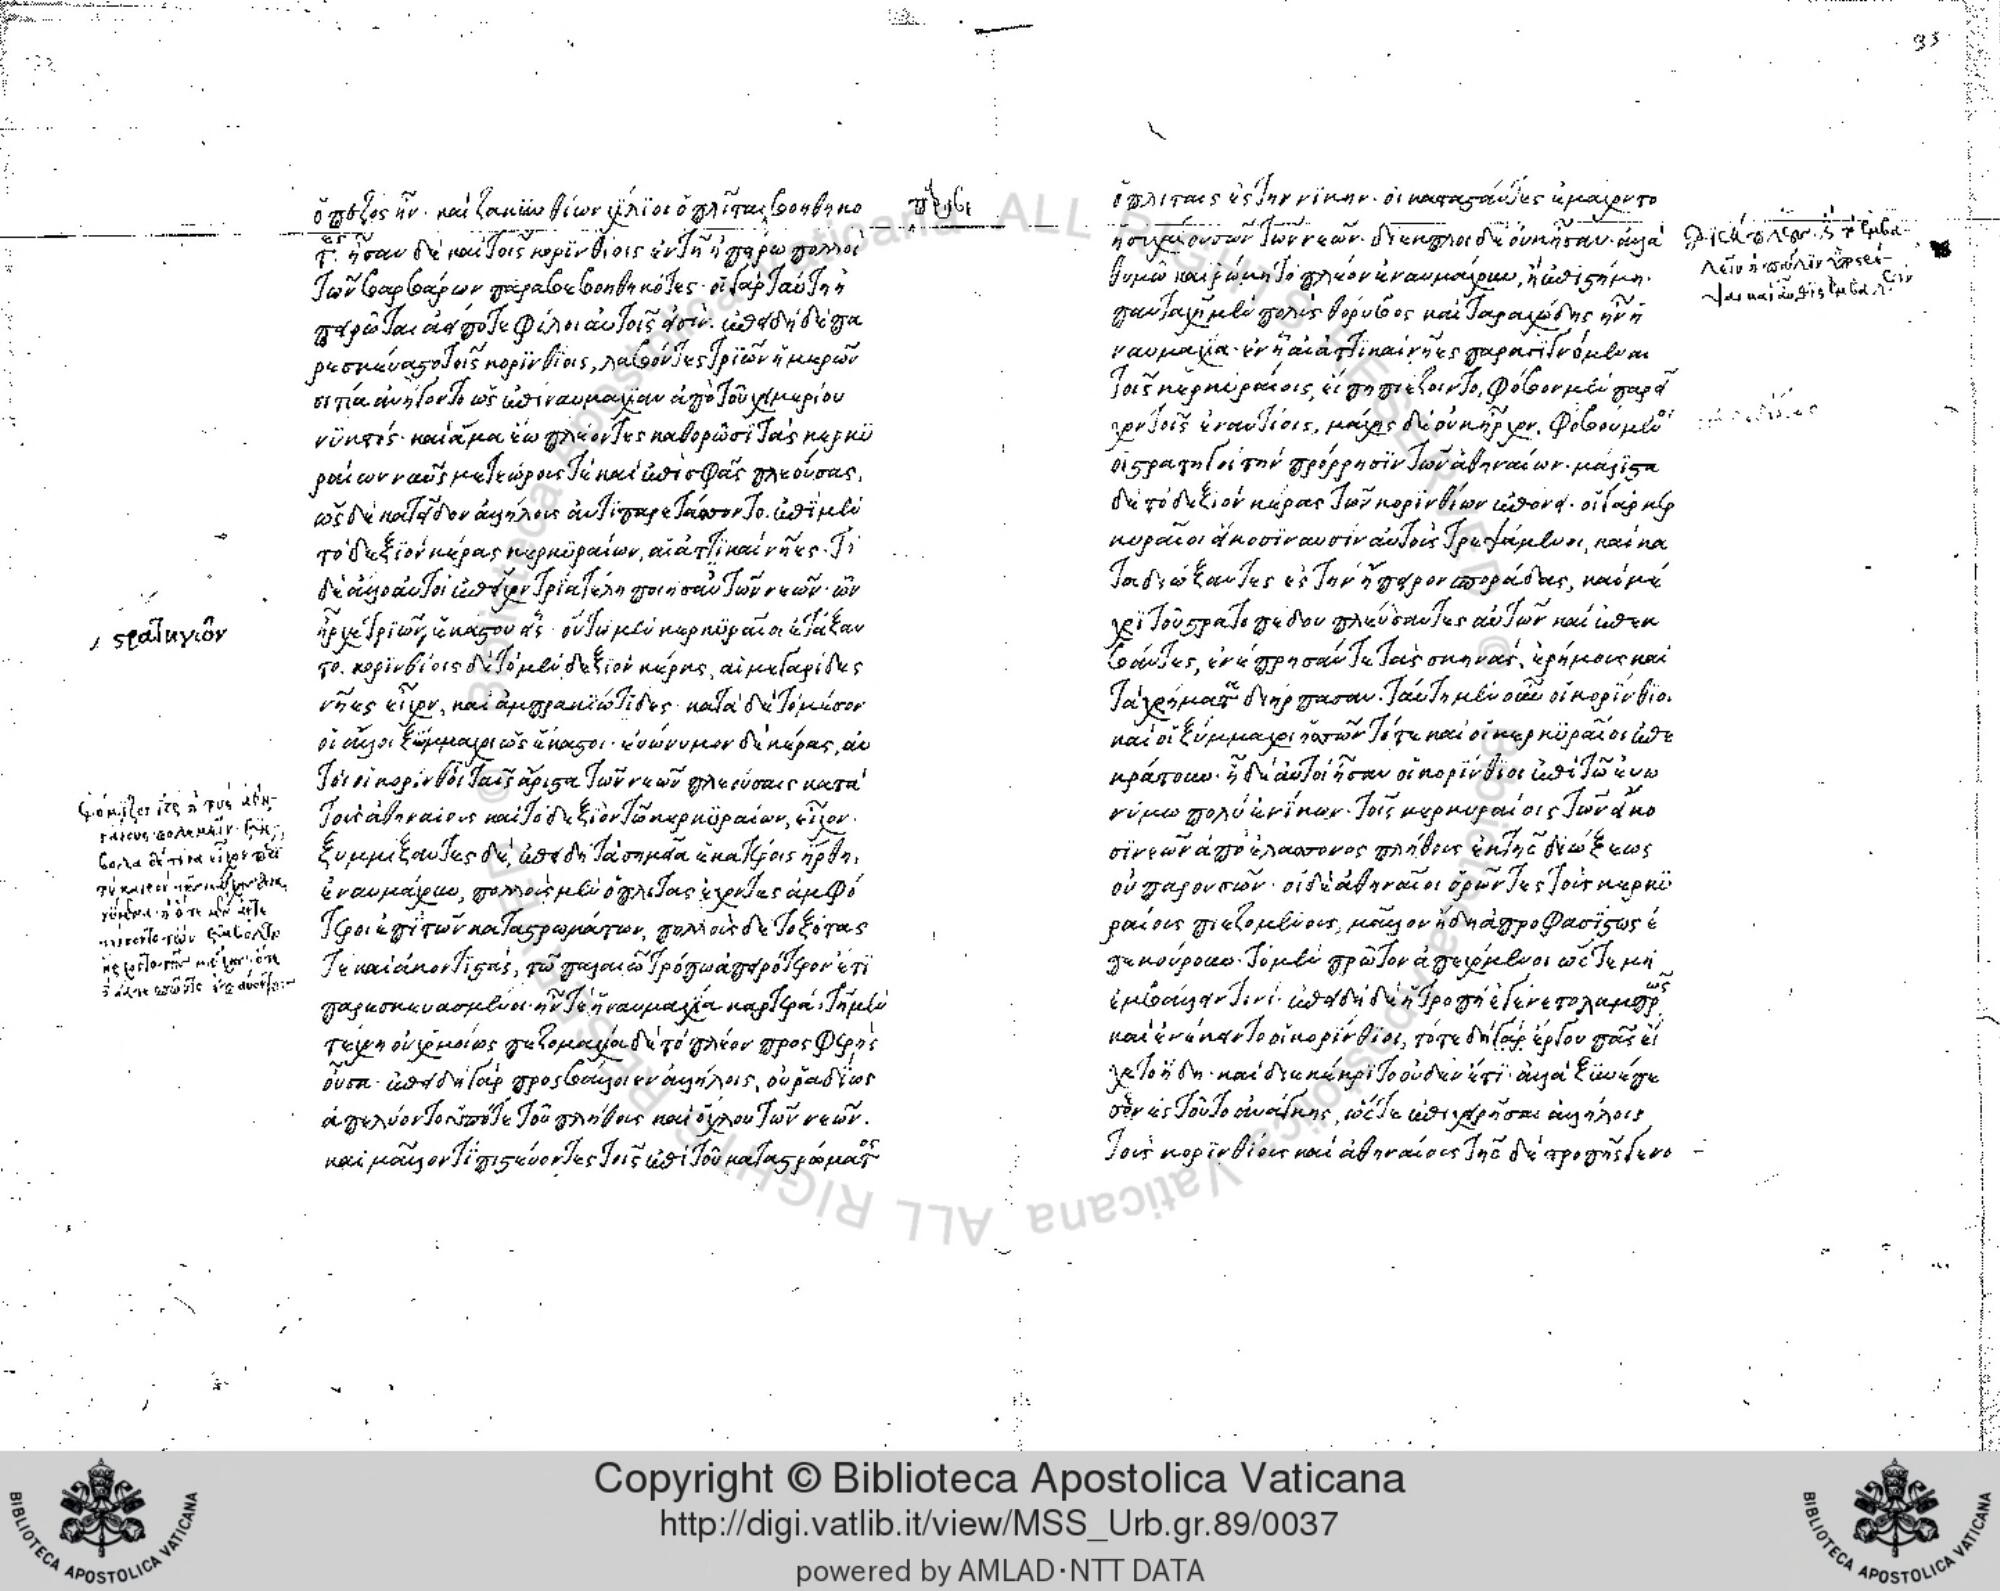 ὁ πεζὸς ἦν· καὶ ζακϋνθίων χίλϊοι ὁπλῖται βεβοηθηκό
τες· ἦσαν δὲ καὶ τοῖς κορϊνθίοις ἐν τῆ ἠπείρω πολλοὶ
τῶν βαρβάρων παραβεβοηθηκότες· οἱ γὰρ ταύτη ἠ
πειρῶται ἀεί ποτε φίλοι αὐτοῖς εἰσίν· ἐπειδὴ δὲ πα
ρεσκεύαστο τοῖς κορϊνθίοις, λαβόντες τριῶν ἡμερῶν
σιτία ἀνήγοντο ὡς ἐπὶ ναυμαχίαν ἀπὸ τοῦ χειμερίου
νϋκτός· καὶ ἅμα ἕω πλέοντες καθορῶσϊ τὰς κερκϋ
ραίων ναῦς μετεώρους τε καὶ ἐπὶ σφᾶς πλεούσας,
ὡς δὲ κατεῖδον ἀλλήλους ἀντιπαρετάσσοντο· ἐπὶ μὲν
τὸ δεξϊὸν κέρας κερκϋραίων, αἱ ἀττϊκαὶ νῆες· τὸ
δὲ ἄλλο αὐτοὶ ἐπεῖχον τρία τέλη ποιήσαντες τῶν νεῶν· ὧν
ἦρχε τριῶν, ἑκάστου εἷς· οὕτω μὲν κερκϋραῖοι ἐτάξαν
το· κορϊνθίοις δὲ τὸ μὲν δεξϊὸν κέρας, αἱ μεγαρίδες
νῆες εἶχον, καὶ ἀμπρακϊώτιδες· κατὰ δὲ τὸ μέσον
οἱ ἄλλοι ξύμμαχοι ὡς ἕκαστοι· εὐώνυμον δὲ κέρας, αὐ
τοὶ οἱ κορίνθϊοι ταῖς ἄριστα τῶν νεῶν πλεούσαις κατὰ
τοὺς ἀθηναίους καὶ τὸ δεξϊὸν τῶν κερκϋραίων, εἶχον·
ξυμμίξαντες δέ, ἐπειδὴ τὰ σημεῖα ἑκατέροις ἤρθη,
ἐναυμάχουν, πολλοὺς μὲν ὁπλίτας ἔχοντες ἀμφό
τεροι ἐπὶ τῶν καταστρωμάτων, πολλοὺς δὲ τοξότας
τε καὶ ἀκοντιστάς, τῶ παλαιῶ τρόπω ἀπειρότερον ἔτϊ
παρεσκευασμένοι· ἦν τε ἡ ναυμαχία καρτερά· τῆ μὲν
τέχνη οὐχ ὁμοίως πεζομαχία δὲ τὸ πλέον προσφερὴς
οὖσα· ἐπειδὴ γὰρ προσβάλλοιεν ἀλλήλοις, οὐ ῥαδίως
ἀπελύοντο ὑπό τε τοῦ πλήθους καὶ ὄχλου τῶν νεῶν·
καὶ μᾶλλόν τι πιστεύοντες τοῖς ἐπὶ τοῦ καταστρώματος
στρατηγιῶν
ὁπλίταις ἐς τὴν νίκην· οἳ καταστάντες ἐμάχοντο
ἡσυχαζουσῶν τῶν νεῶν· διέκπλοι δὲ οὐκ ἦσαν· ἀλλὰ
θυμῶ καὶ ῥώμη τὸ πλέον ἐναυμάχουν, ἢ ἐπιστήμη·
πανταχῆ μὲν πολὺς θόρυβος καὶ ταραχώδης ἦν ἡ
ναυμαχία· ἐν ἧ αἱ ἀττϊκαὶ νῆες παραγϊγνόμεναι
τοῖς κερκυραίοις, εἴ πη πιέζοιντο, φόβον μὲν παρεῖ
χον τοῖς ἐναντίοις, μάχης δὲ οὐκ ἦρχον· φοβούμενοι
οἱ στρατηγοὶ τὴν πρόρρησϊν τῶν ἀθηναίων· μάλϊστα
δὲ τὸ δεξιὸν κέρας τῶν κορϊνθίων ἐπόνει· οἱ γὰρ κερ
κυραῖοι εἴκοσϊ ναυσὶν αὐτοὺς τρεψάμενοι, καὶ κα
ταδιώξαντες ἐς τὴν ἤπειρον σποράδας, καὶ μέ
χρι τοῦ στρατοπέδου πλεύσαντες αὐτῶν καὶ ἐπεκ
βάντες, ἐνέπρησάν τε τὰς σκηνὰς ἐρήμους καὶ
τὰ χρήματα διήρπασαν· ταύτη μὲν οὖν οἱ κορίνθϊοι
καὶ οἱ ξύμμαχοι ἡσσῶντό τε καὶ οἱ κερκϋραῖοι ἐπε
κράτουν· ἧ δὲ αὐτοὶ ἦσαν οἱ κορίνθϊοι ἐπὶ τῶ εὐω
νύμω πολὺ ἐνίκων· τοῖς κερκυραίοις τῶν εἴκο
σϊ νεῶν ἀπὸ ἐλάσσονος πλήθους ἐκ τῆς διώξεως
οὐ παρουσῶν· οἱ δὲ ἀθηναῖοι ὁρῶντες τοὺς κερκϋ
ραίους πιεζομένους, μᾶλλον ἤδη ἀπροφασίστως ἐ
πεκούρουν· τὸ μὲν πρῶτον ἀπεχόμενοι ὥστε μὴ
ἐμβάλλειν τινί· ἐπειδὴ δὲ ἡ τροπὴ ἐγένετο λαμπρῶς
καὶ ἐνέκειντο οἱ κορίνθϊοι, τότε δὴ γὰρ ἔργου πᾶς εἴ
χετο ἤδη· καὶ διεκέκρϊτο οὐδὲν ἔτι· ἀλλὰ ξϋνέπε
σεν ἐς τοῦτο ἀνάγκης, ὥστε ἐπιχειρῆσαι ἀλλήλοις
τοὺς κορϊνθίους καὶ ἀθηναίους τῆς δὲ τροπῆς γενο
Copyright © Biblioteca Apostolica Vaticana
http://digi.vatlib.it/view/MSS_Urb.gr.89/0037
powered by AMLAD·NTT DATA